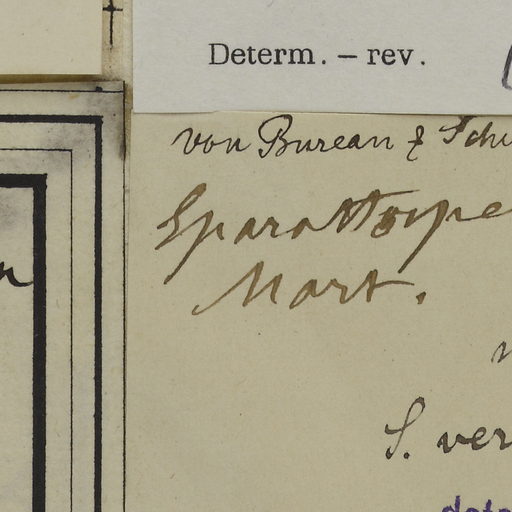 Determ. – rev.
von Bureau & Schu
Sparattospe
Mart.
S. ver
dete